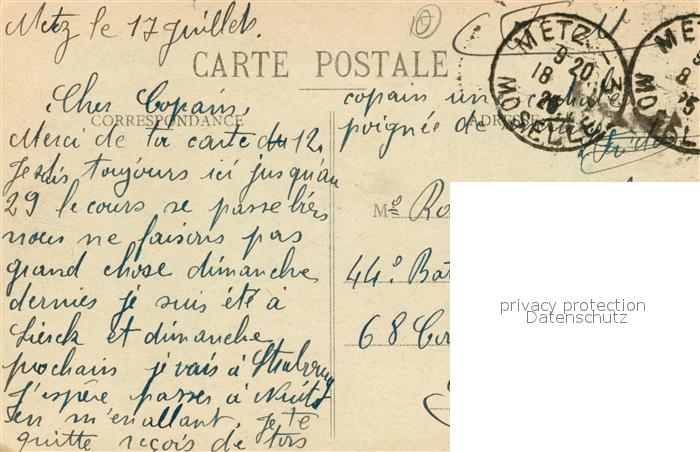 Metz le 17 Juillet.
CARTE POSTALE
METZ
9 20
18
MOSELLE
Cher Copain,
CORRESPONDANCE
Merci de ta carte du 12.
Je suis toujours ici jusqu'au
29 le cours se passe bien
nous ne faisons pas
grand chose dimanche
dernier je suis été à
Sierck et dimanche
prochain je vais à Strasbourg
J'espère passer à Nuits
en m'enallant. Je te
quitte reçois de ton
copain une
poignée de
ADRESSE
M
44e Bat
68
privacy protection
Datenschutz